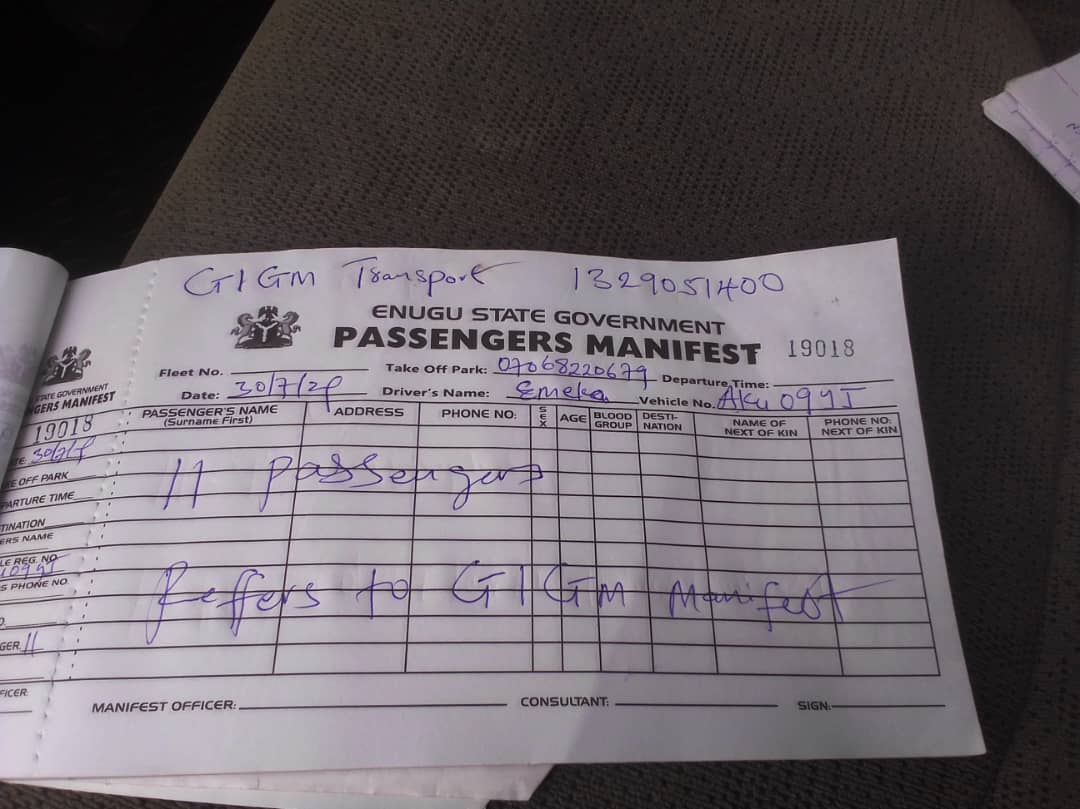 GIGM Transport 1329051400
ENUGU STATE GOVERNMENT
PASSENGERS MANIFEST 19018
Fleet No. Take Off Park: 07068220679 Departure Time:
Date: 30/7/2 Driver's Name: Emeka Vehicle No. AKU 099J
PASSENGER'S NAME (Surname First) ADDRESS PHONE NO: SEX AGE BLOOD GROUP DESTI-NATION NAME OF NEXT OF KIN PHONE NO: NEXT OF KIN
11 Passengers
Reffers to GIGM Manifest
MANIFEST OFFICER: CONSULTANT: SIGN:
STATE GOVERNMENT
NGERS MANIFEST
19018
KE OFF PARK
PARTURE TIME
TINATION
ERS NAME
LE REG. NO
S PHONE NO.
GER 11
FICER: